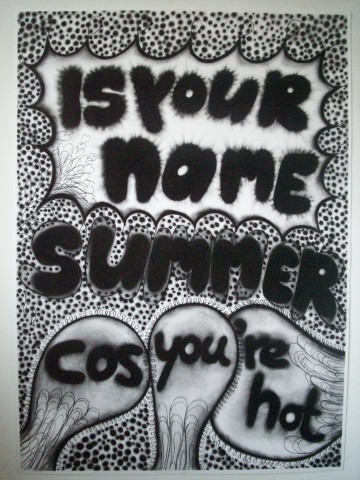 IS YOUR
NAME
SUMMER
cos you're
hot